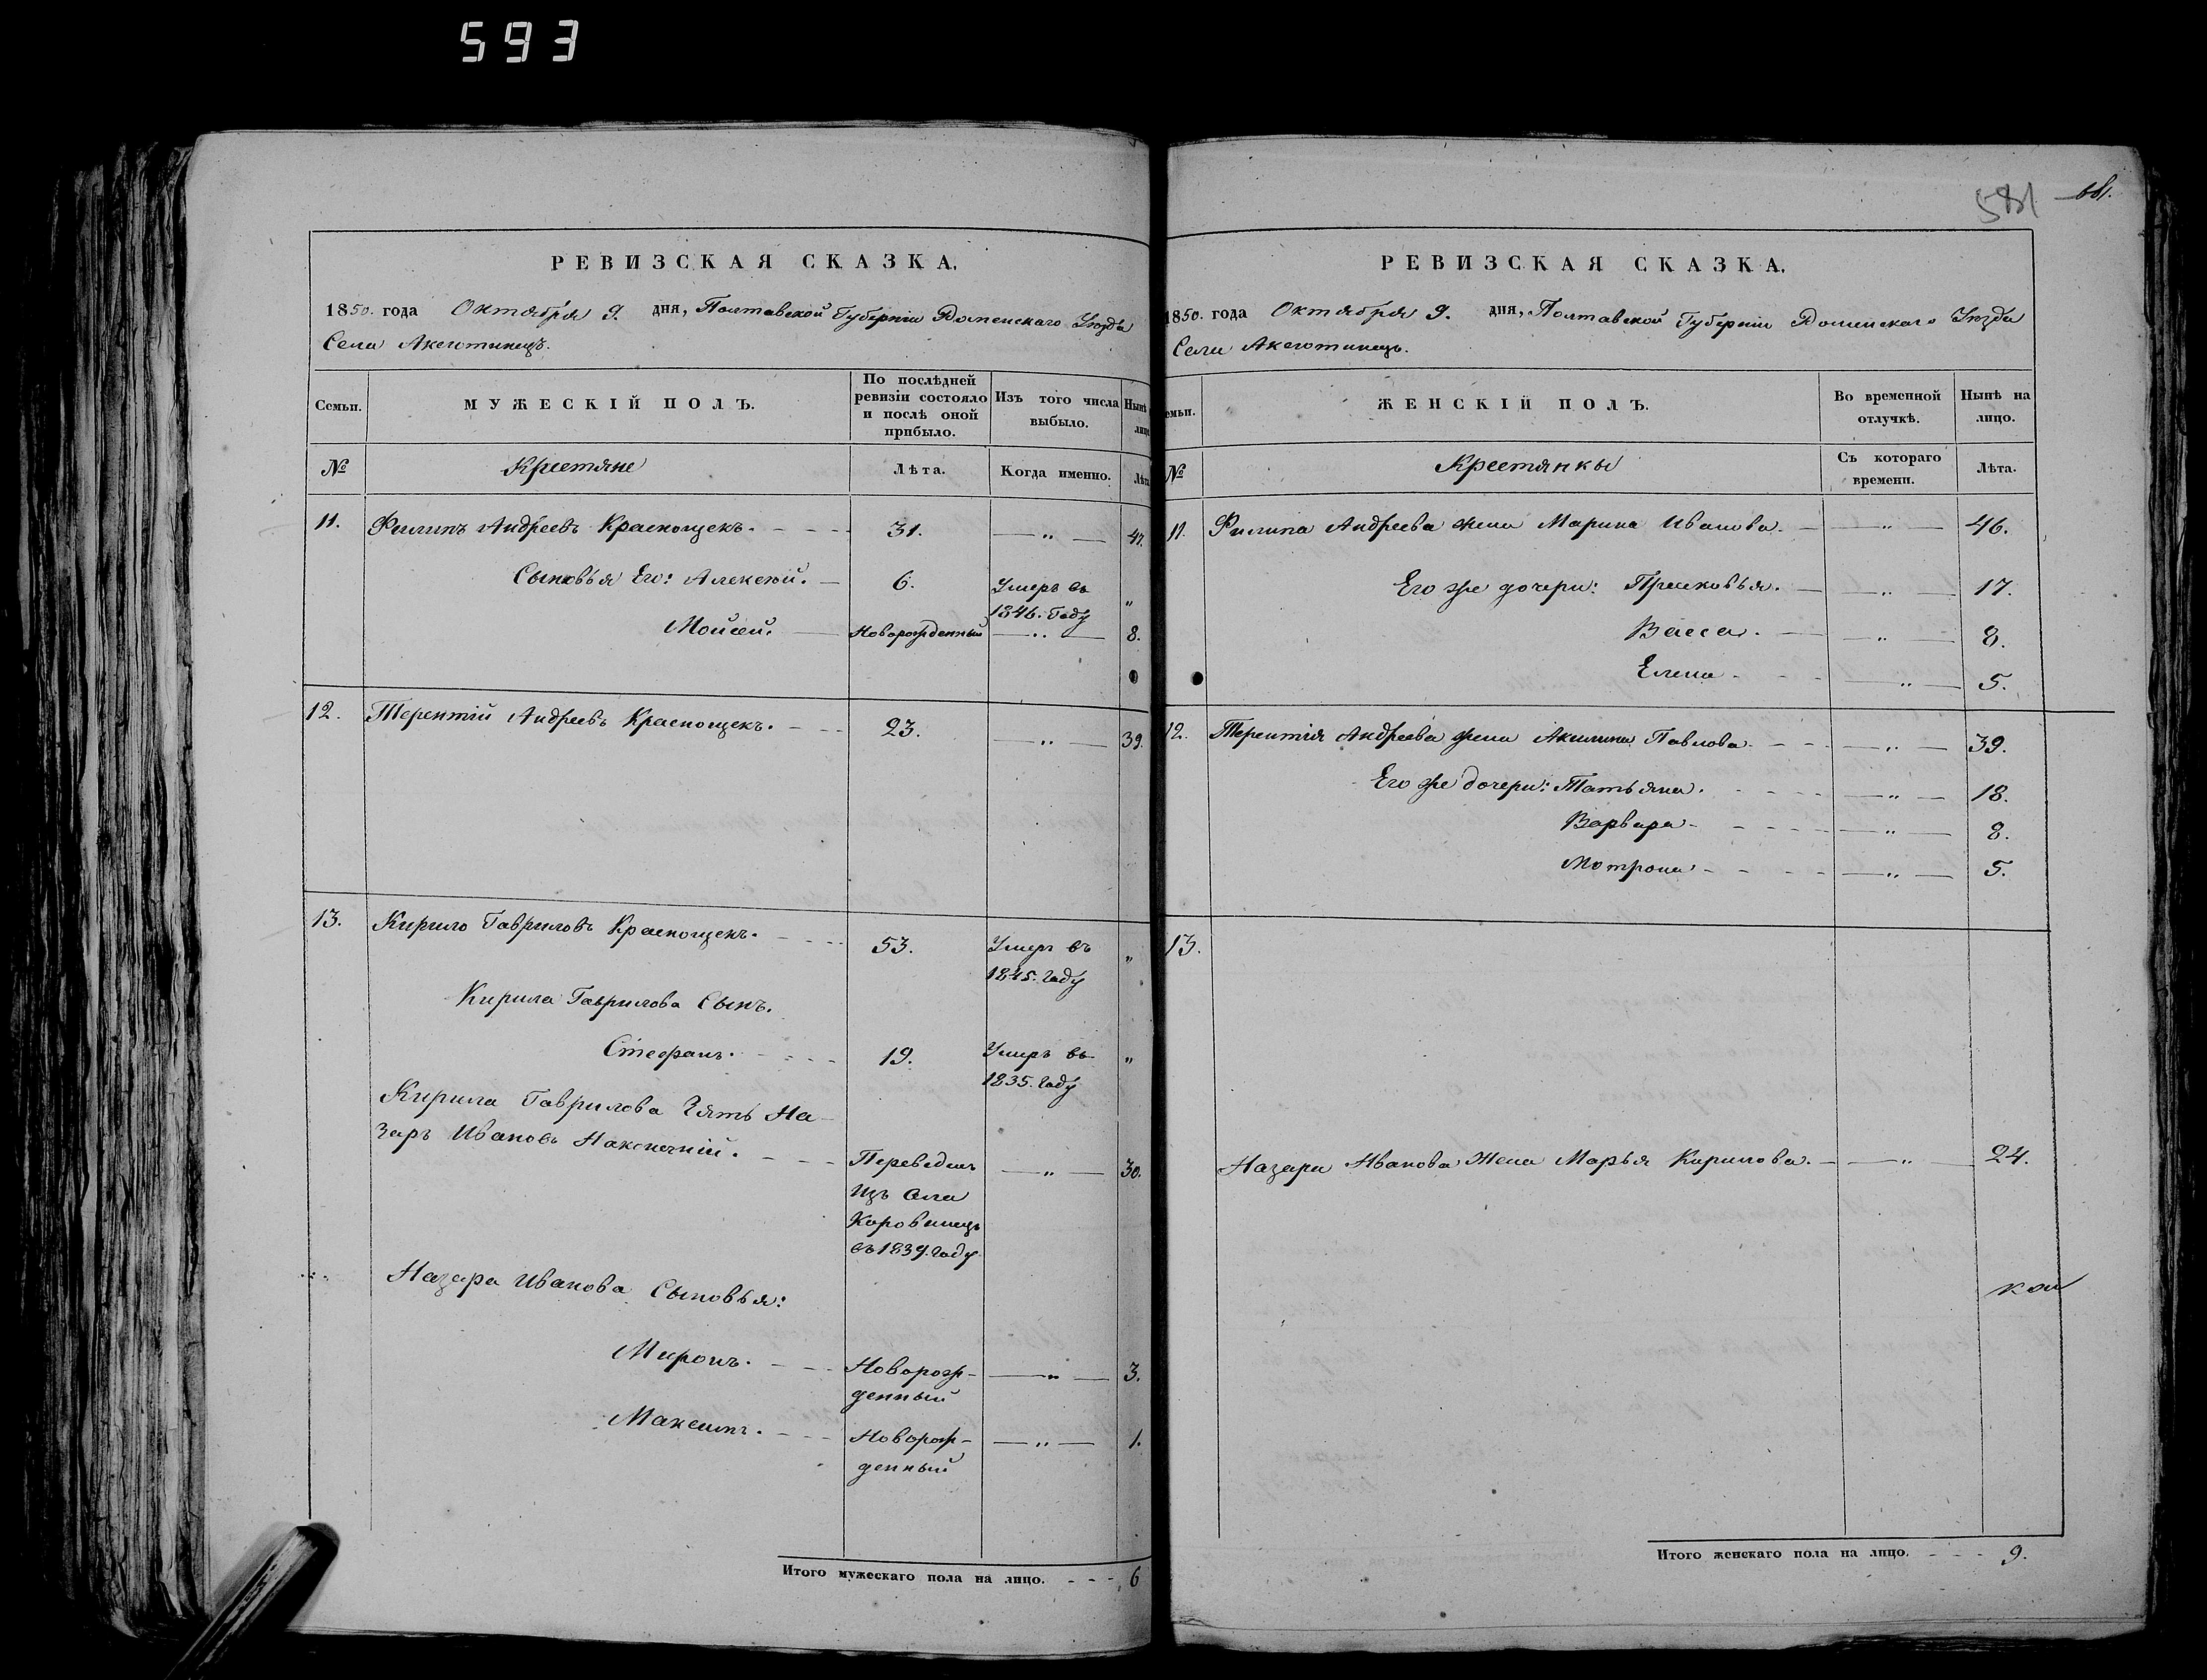 593
РЕВИЗСКАЯ СКАЗКА.
1850. года Октября 9. дня, Полтавской Губерніи Роменскаго Уѣзда
Села Аксютинецъ.
Семьи.
МУЖЕСКІЙ ПОЛЪ.
По послѣдней ревизіи состояло и послѣ оной прибыло.
Изъ того числа выбыло.
Нынѣ
лице
№
Крестяне
Лѣта.
Когда именно.
Лѣта
11. Филипъ Андреевъ Краснощекъ. 31. —„— 47.
Сыновья Его: Алексѣй. — 6. Умеръ въ 1846. Году „
Мойсей. — Новорожденный —„— 8.
12. Терентій Андреевъ Краснощекъ. 23. —„— 39.
13. Кирило Гавриловъ Краснощекъ. 53. Умеръ въ 1845. Году „
Кирила Гаврилова Сынъ.
Стефанъ. 19. Умеръ въ 1835. Году „
Кирила Гаврилова Зять На-
заръ Ивановъ Наконечній. Переведенъ изъ Села Коровинецъ въ 1839. Году —„— 30.
Назара Иванова Сыновья:
Миронъ. Новорож-денный —„— 3.
Максимъ. Новорож-денный —„— 1.
Итого мужескаго пола на лицо. 6
581
РЕВИЗСКАЯ СКАЗКА.
1850. года Октября 9. дня, Полтавской Губерніи Роменскаго Уѣзда
Села Аксютинецъ.
емьи.
ЖЕНСКІЙ ПОЛЪ.
Во временной отлучкѣ.
Нынѣ на лицо.
№
Крестянки
Съ котораго времени.
Лѣта.
11. Филипа Андреева жена Марина Иванова. —„— 46.
Его же дочери: Прасковья. —„— 17.
Васса. —„— 8.
Елена —„— 5.
12. Терентія Андреева жена Акилина Павлова. —„— 39.
Его же дочери: Татьяна. —„— 18.
Варвара —„— 8.
Мотрона —„— 5.
13.
Назара Иванова Жена Марья Кирилова. —„— 24.
Итого женскаго пола на лицо. 9.